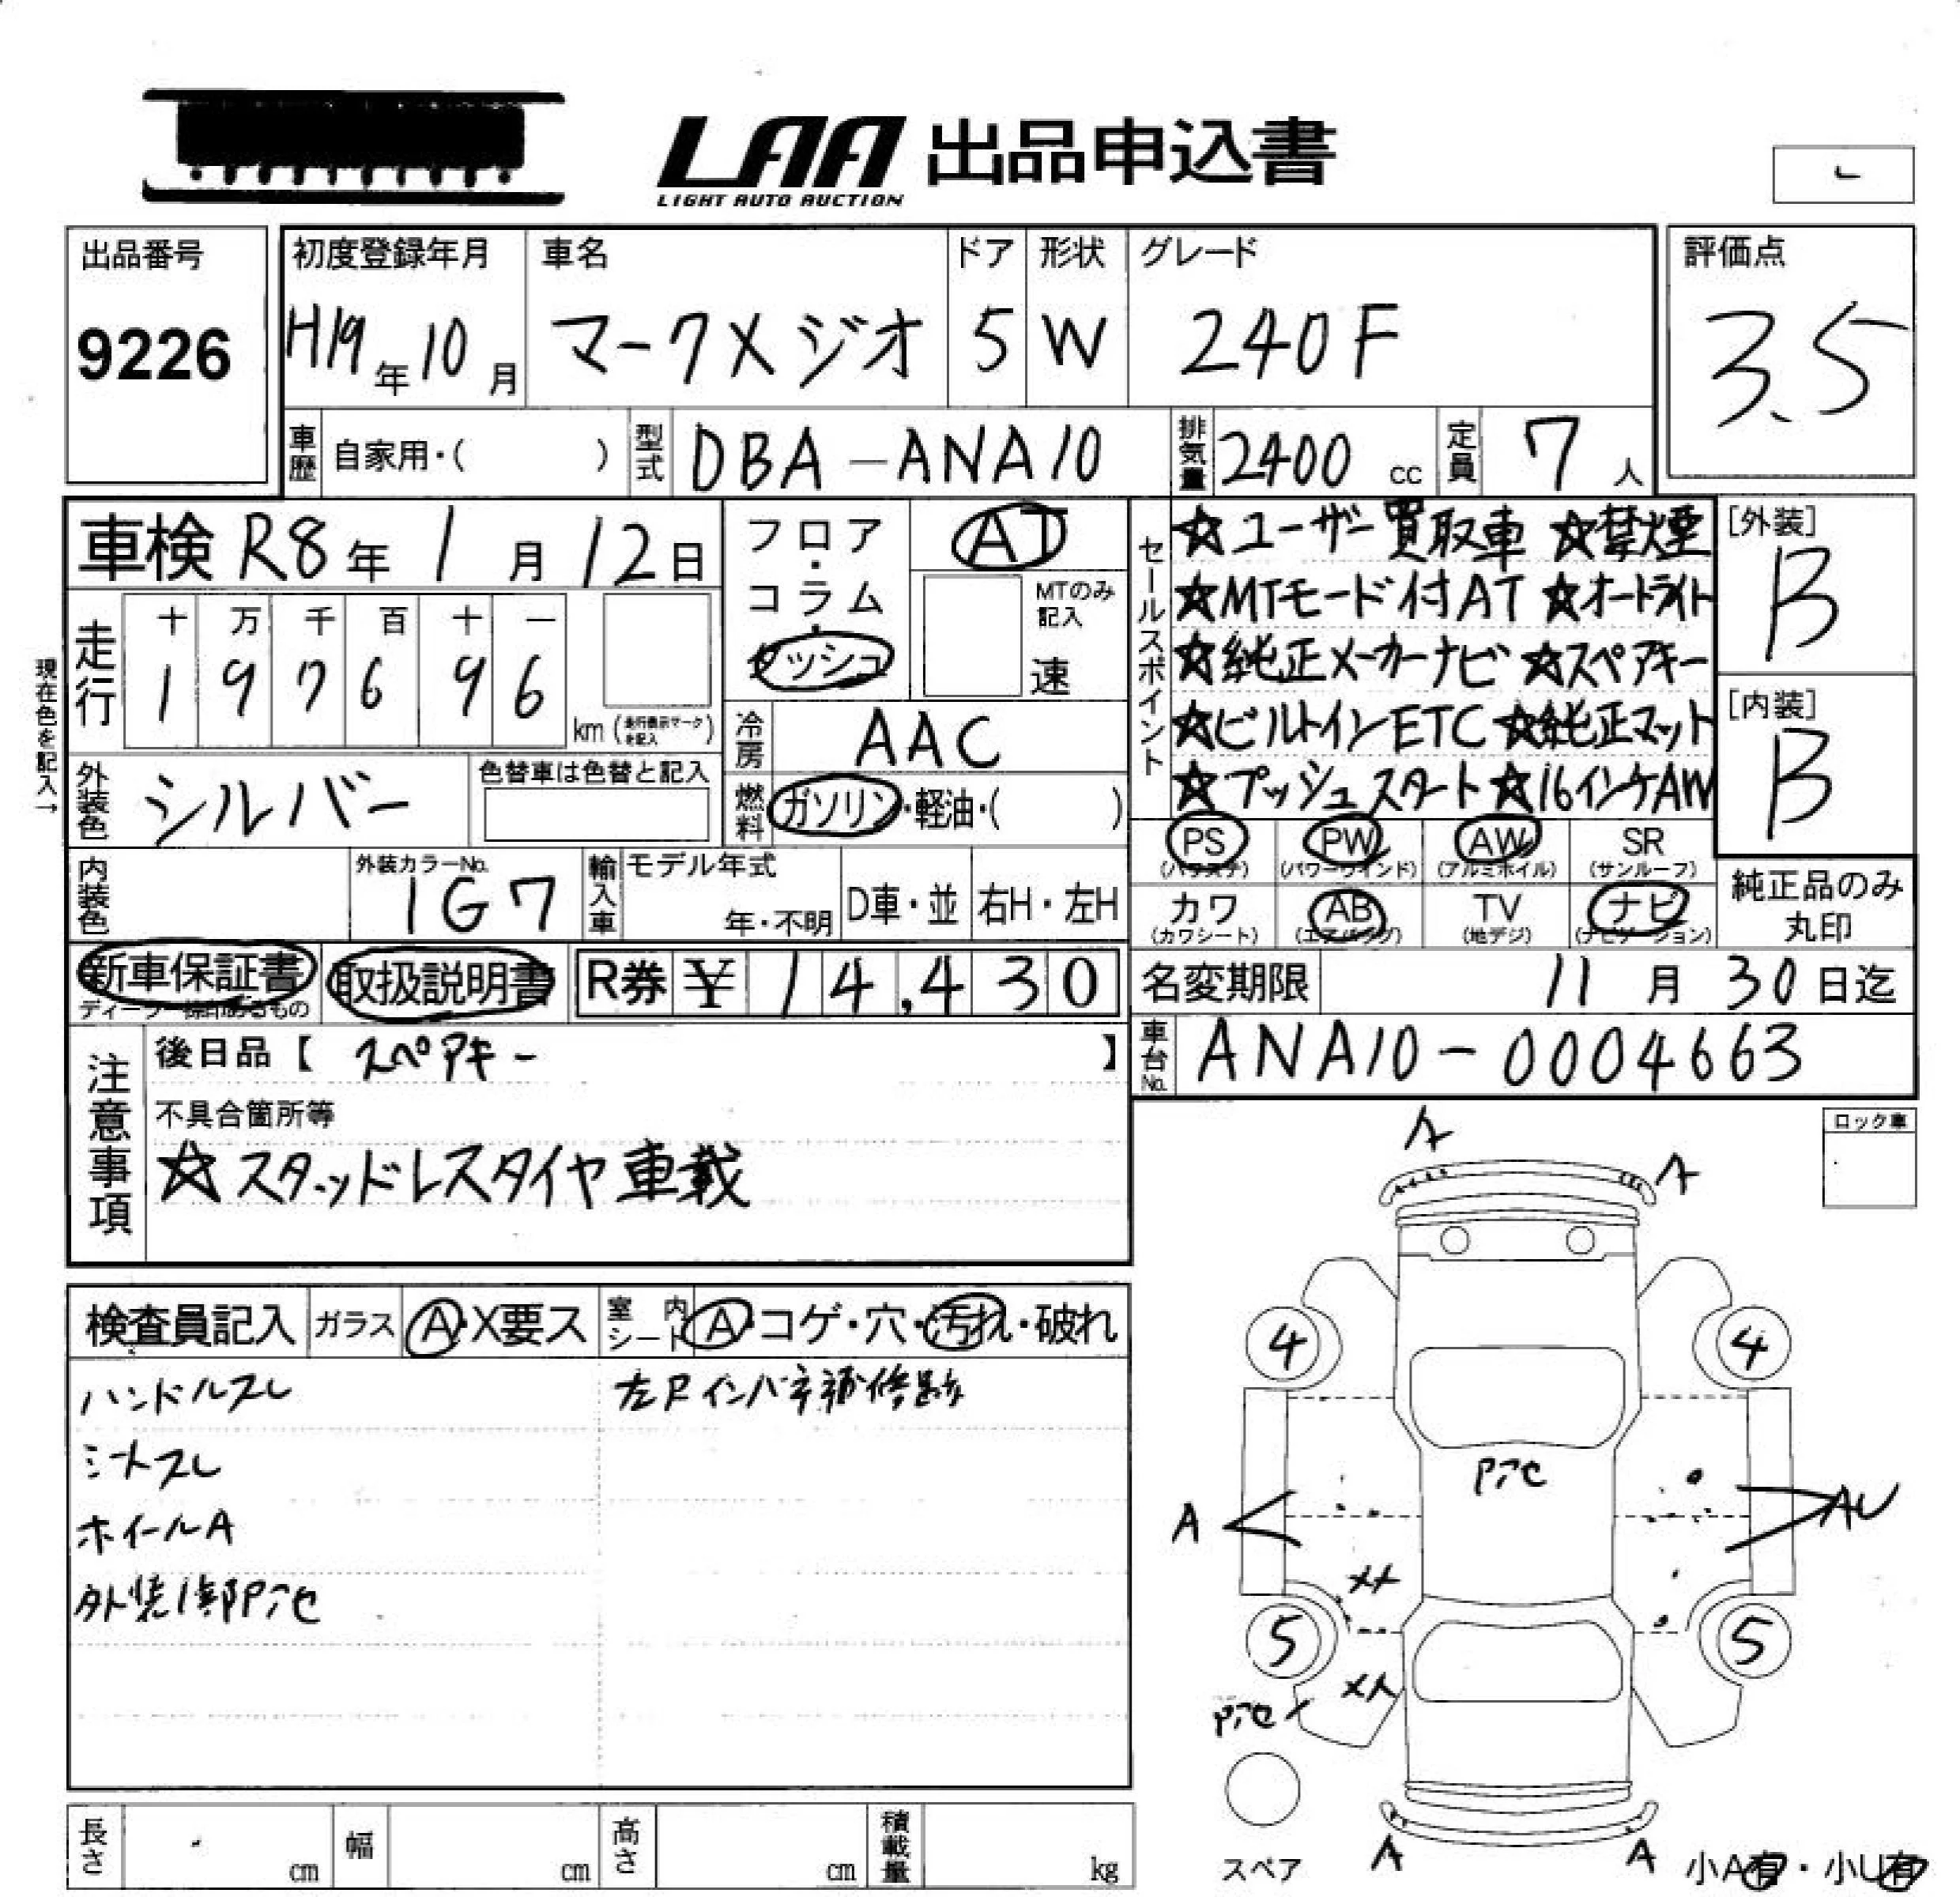 LAA 出品申込書
LIGHT AUTO AUCTION
出品番号
9226
初度登録年月
H19年10月
車名
マークXジオ
ドア
5
形状
W
グレード
240F
評価点
3.5
車歴 自家用・( )
型式 DBA-ANA10
排気量 2400 cc
定員 7 人
車検 R8年 1月 12日
現在色を記入→
走行
十 万 千 百 十 一
1 9 7 6 9 6
km (走行表示マークを記入)
フロア・コラム・ダッシュ
AT
MTのみ記入
速
冷房 AAC
燃料 ガソリン・軽油・( )
外装色 シルバー
色替車は色替と記入
内装色
外装カラーNo.
1G7
輸入車
モデル年式
年・不明
D車・並
右H・左H
セールスポイント
☆ユーザー買取車 ☆禁煙
☆MTモード付AT ☆オートライト
☆純正メーカーナビ ☆スペアキー
☆ビルトインETC ☆純正マット
☆プッシュスタート ☆16インチAW
[外装]
B
[内装]
B
PS (パワステ)
PW (パワーウインド)
AW (アルミホイル)
SR (サンルーフ)
カワ (カワシート)
AB (エアバッグ)
TV (地デジ)
ナビ (ナビゲーション)
純正品のみ丸印
新車保証書
ディーラー捺印あるもの
取扱説明書
R券 ¥14,430
名変期限 11月30日迄
車台No. ANA10-0004663
注意事項
後日品【 スペアキー 】
不具合箇所等
☆スタッドレスタイヤ車載
ロック車
検査員記入
ガラス A・X要ス
室内シート A・コゲ・穴・汚れ・破れ
ハンドルスレ
シートスレ
ホイールA
外装1部Pハセ
左Rインパネ補修跡
A
A
4
4
Pハセ
A
AU
XA
5
5
XA
Pハセ
スペア
A
A
小A有・小U有
長さ cm
幅 cm
高さ cm
積載量 kg